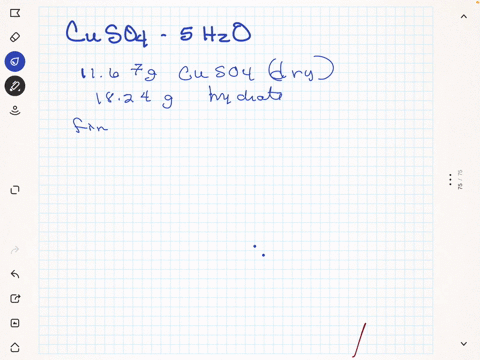 CuSO4 - 5 H2O
11.67g CuSO4 (dry)
18.24 g hydrate
fin
75 / 75